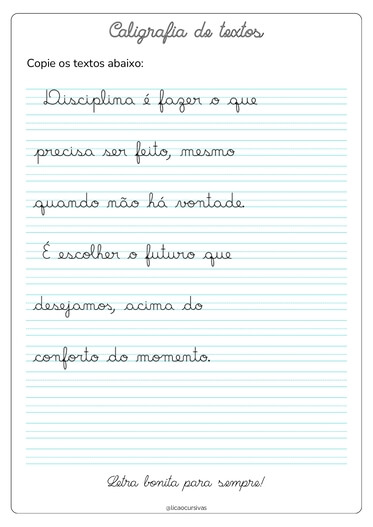 Caligrafia de textos
Copie os textos abaixo:
Disciplina é fazer o que
precisa ser feito, mesmo
quando não há vontade.
É escolher o futuro que
desejamos, acima do
conforto do momento.
Letra bonita para sempre!
@licaocursivas